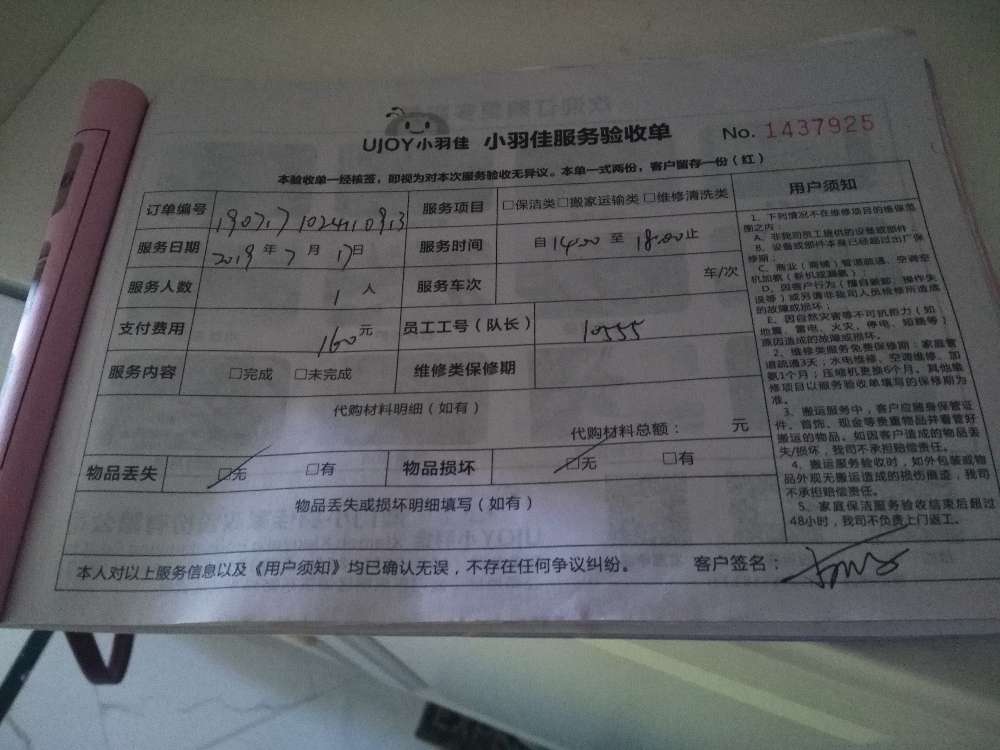 UJOY小羽佳 小羽佳服务验收单 No. 1437925
本验收单一经核签，即视为对本次服务验收无异议。本单一式两份，客户留存一份（红）
订单编号 服务项目 □保洁类 □搬家运输类 □维修清洗类
服务日期 2019 年 7 月 17 日 服务时间 自 14:00 至 18:00 止
服务人数 1 人 服务车次 车/次
支付费用 160 元 员工工号（队长） 10555
服务内容 □完成 □未完成 维修类保修期
代购材料明细（如有）
代购材料总额： 元
物品丢失 □无 □有 物品损坏 □无 □有
物品丢失或损坏明细填写（如有）
本人对以上服务信息以及《用户须知》均已确认无误，不存在任何争议纠纷。 客户签名：
用户须知
1、下列情况不在维修项目的维保范
围之内：
A、非我司员工维机的设备或部件；
B、设备或部件本身已经超过出厂保
修期；
C、商业（商铺）管道疏通、空调空
机加氨（新机或漏氨）；
D、因客户行为（擅自装卸、操作失
误等）或另请非我司人员检修所造成
的故障或损坏；
E、因自然灾害等不可抗拒力（如
地震、雷电、火灾、停电、短路等）
原因造成的故障或损坏。
2、维修类服务免费保修期：家庭管
道疏通3天，水电维修、空调维修、加
氨1个月；压缩机更换6个月。其他维
修项目以服务验收单填写的保修期为
准。
3、搬运服务中，客户应随身保管证
件、首饰、现金等贵重物品并看管好
搬运的物品。如因客户造成的物品丢
失/损坏，我司不承担赔偿责任。
4、搬运服务验收时，如外包装或物
品外观无搬运造成的损伤痕迹，我司
不承担赔偿责任。
5、家庭保洁服务验收结束后超过
48小时，我司不负责上门返工。